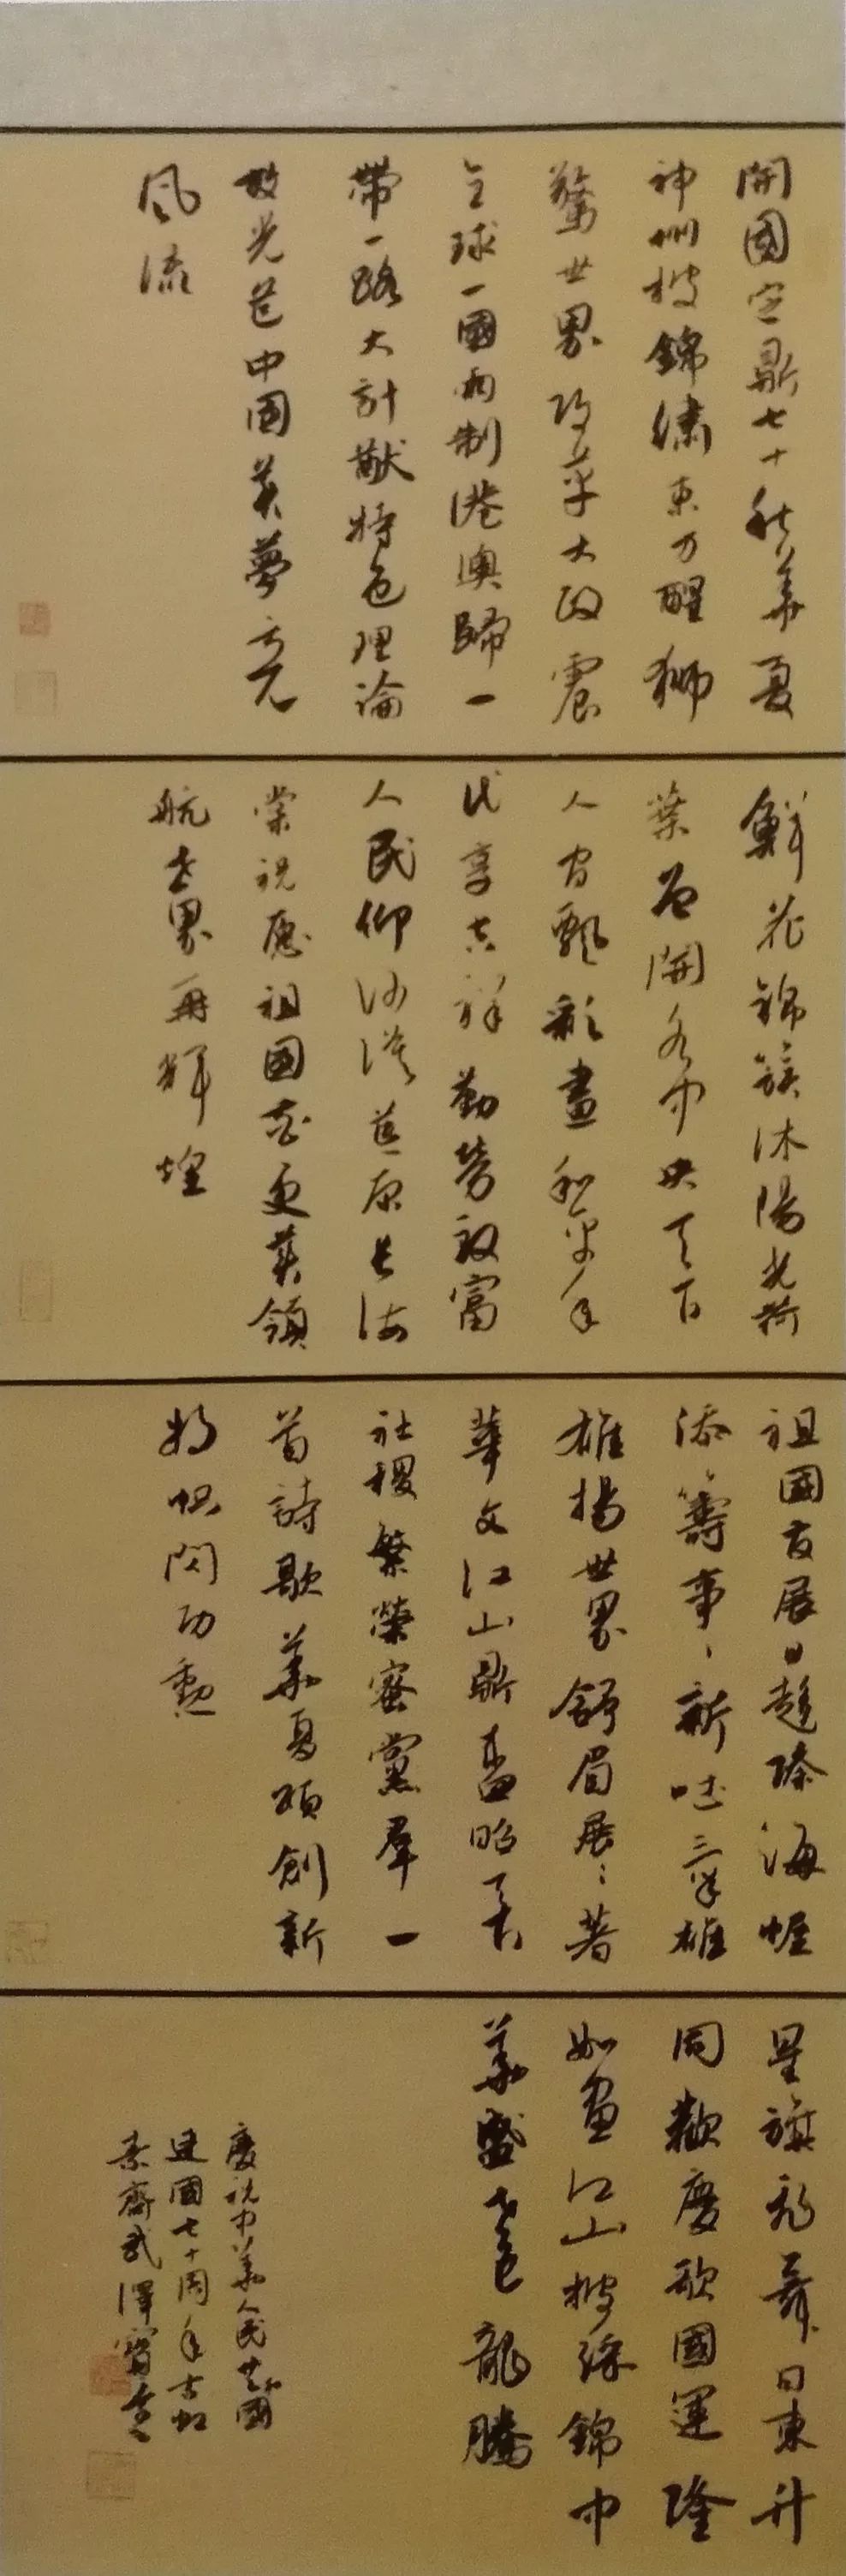 開國定鼎七十秋華夏
神州披錦繡東方醒獅
驚世界改革大政震
全球一國兩制港澳歸一
帶一路大計猷特色理論
放光芒中國美夢立元
風流
鮮花錦簇沐陽光兩
葉齊開為中央天下
人間飄彩畫和平年
代享吉祥勤勞致富
人民仰治
棠祝愿祖國春更美領
航世界再輝煌
祖國發展日趨臻海幄
添籌事事新吐氣雄
雄揚世界舒眉展展著
華文江山鼎盛昭天下
社稷繁榮蜜黨群一
首詩歌華夏頌創新
旗幟閃功勳
星旗彩舞日東升
同歡慶歌國運隆
如畫江山披綠錦中
華盛世龍騰
慶祝中華人民共和國
建國七十周年吉慶
素齋武澤